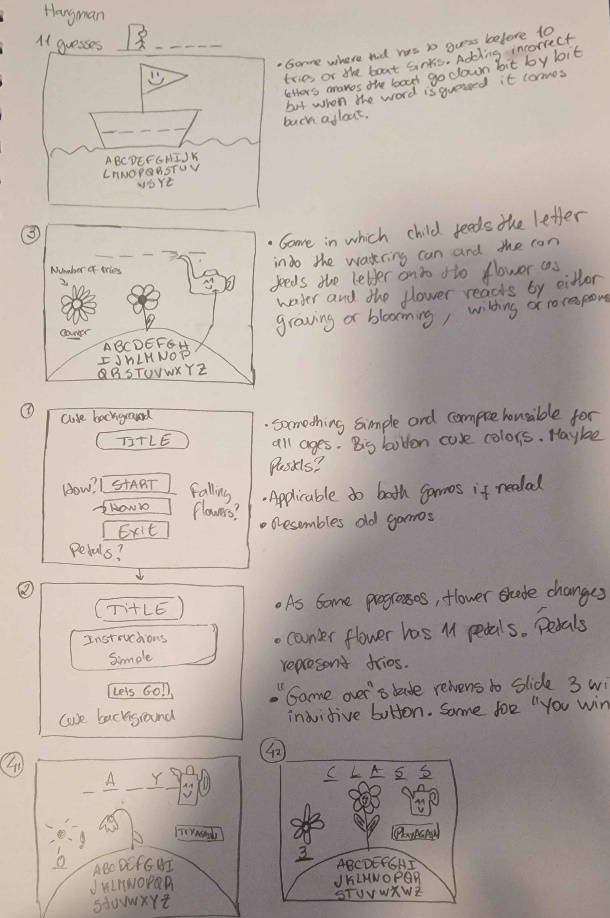 Hangman
11 guesses
• Game where kid has to guess before 10
tries or the boat sinks. Adding incorrect
letters makes the boat go down bit by bit
but when the word is guessed it comes
back afloat.
ABCDEFGHIJK
LMNOPQRSTUV
WSYZ
3
Number of tries
counter
ABCDEFGH
IJKLMNOP
QRSTUVWXYZ
• Game in which child feeds the letter
into the watering can and the can
feeds the letter onto the flower as
water and the flower reacts by either
growing or blooming, wilting or no respons
1
Cute background
TITLE
How?
START
How to
Exit
Falling
flowers?
Petals?
• Something simple and comprehensible for
all ages. Big button cute colors. Maybe
Pastels?
• Applicable to both games if needed
• Resembles old games
2
TITLE
Instructions
Simple
Lets GO!
Cute background
• As game progresses, flower state changes
• Counter flower has 11 petals. Petals
represent tries.
• "Game over" state returns to Slide 3 wi
intuitive button. Same for "You win
4.1
A Y
0
TRY AGAIN
ABCDEFGHI
JKLMNOPQR
STUVWXYZ
4.2
C L A S S
3
PLAY AGAIN
ABCDEFGHI
JKLMNOPQR
STUVWXWZ